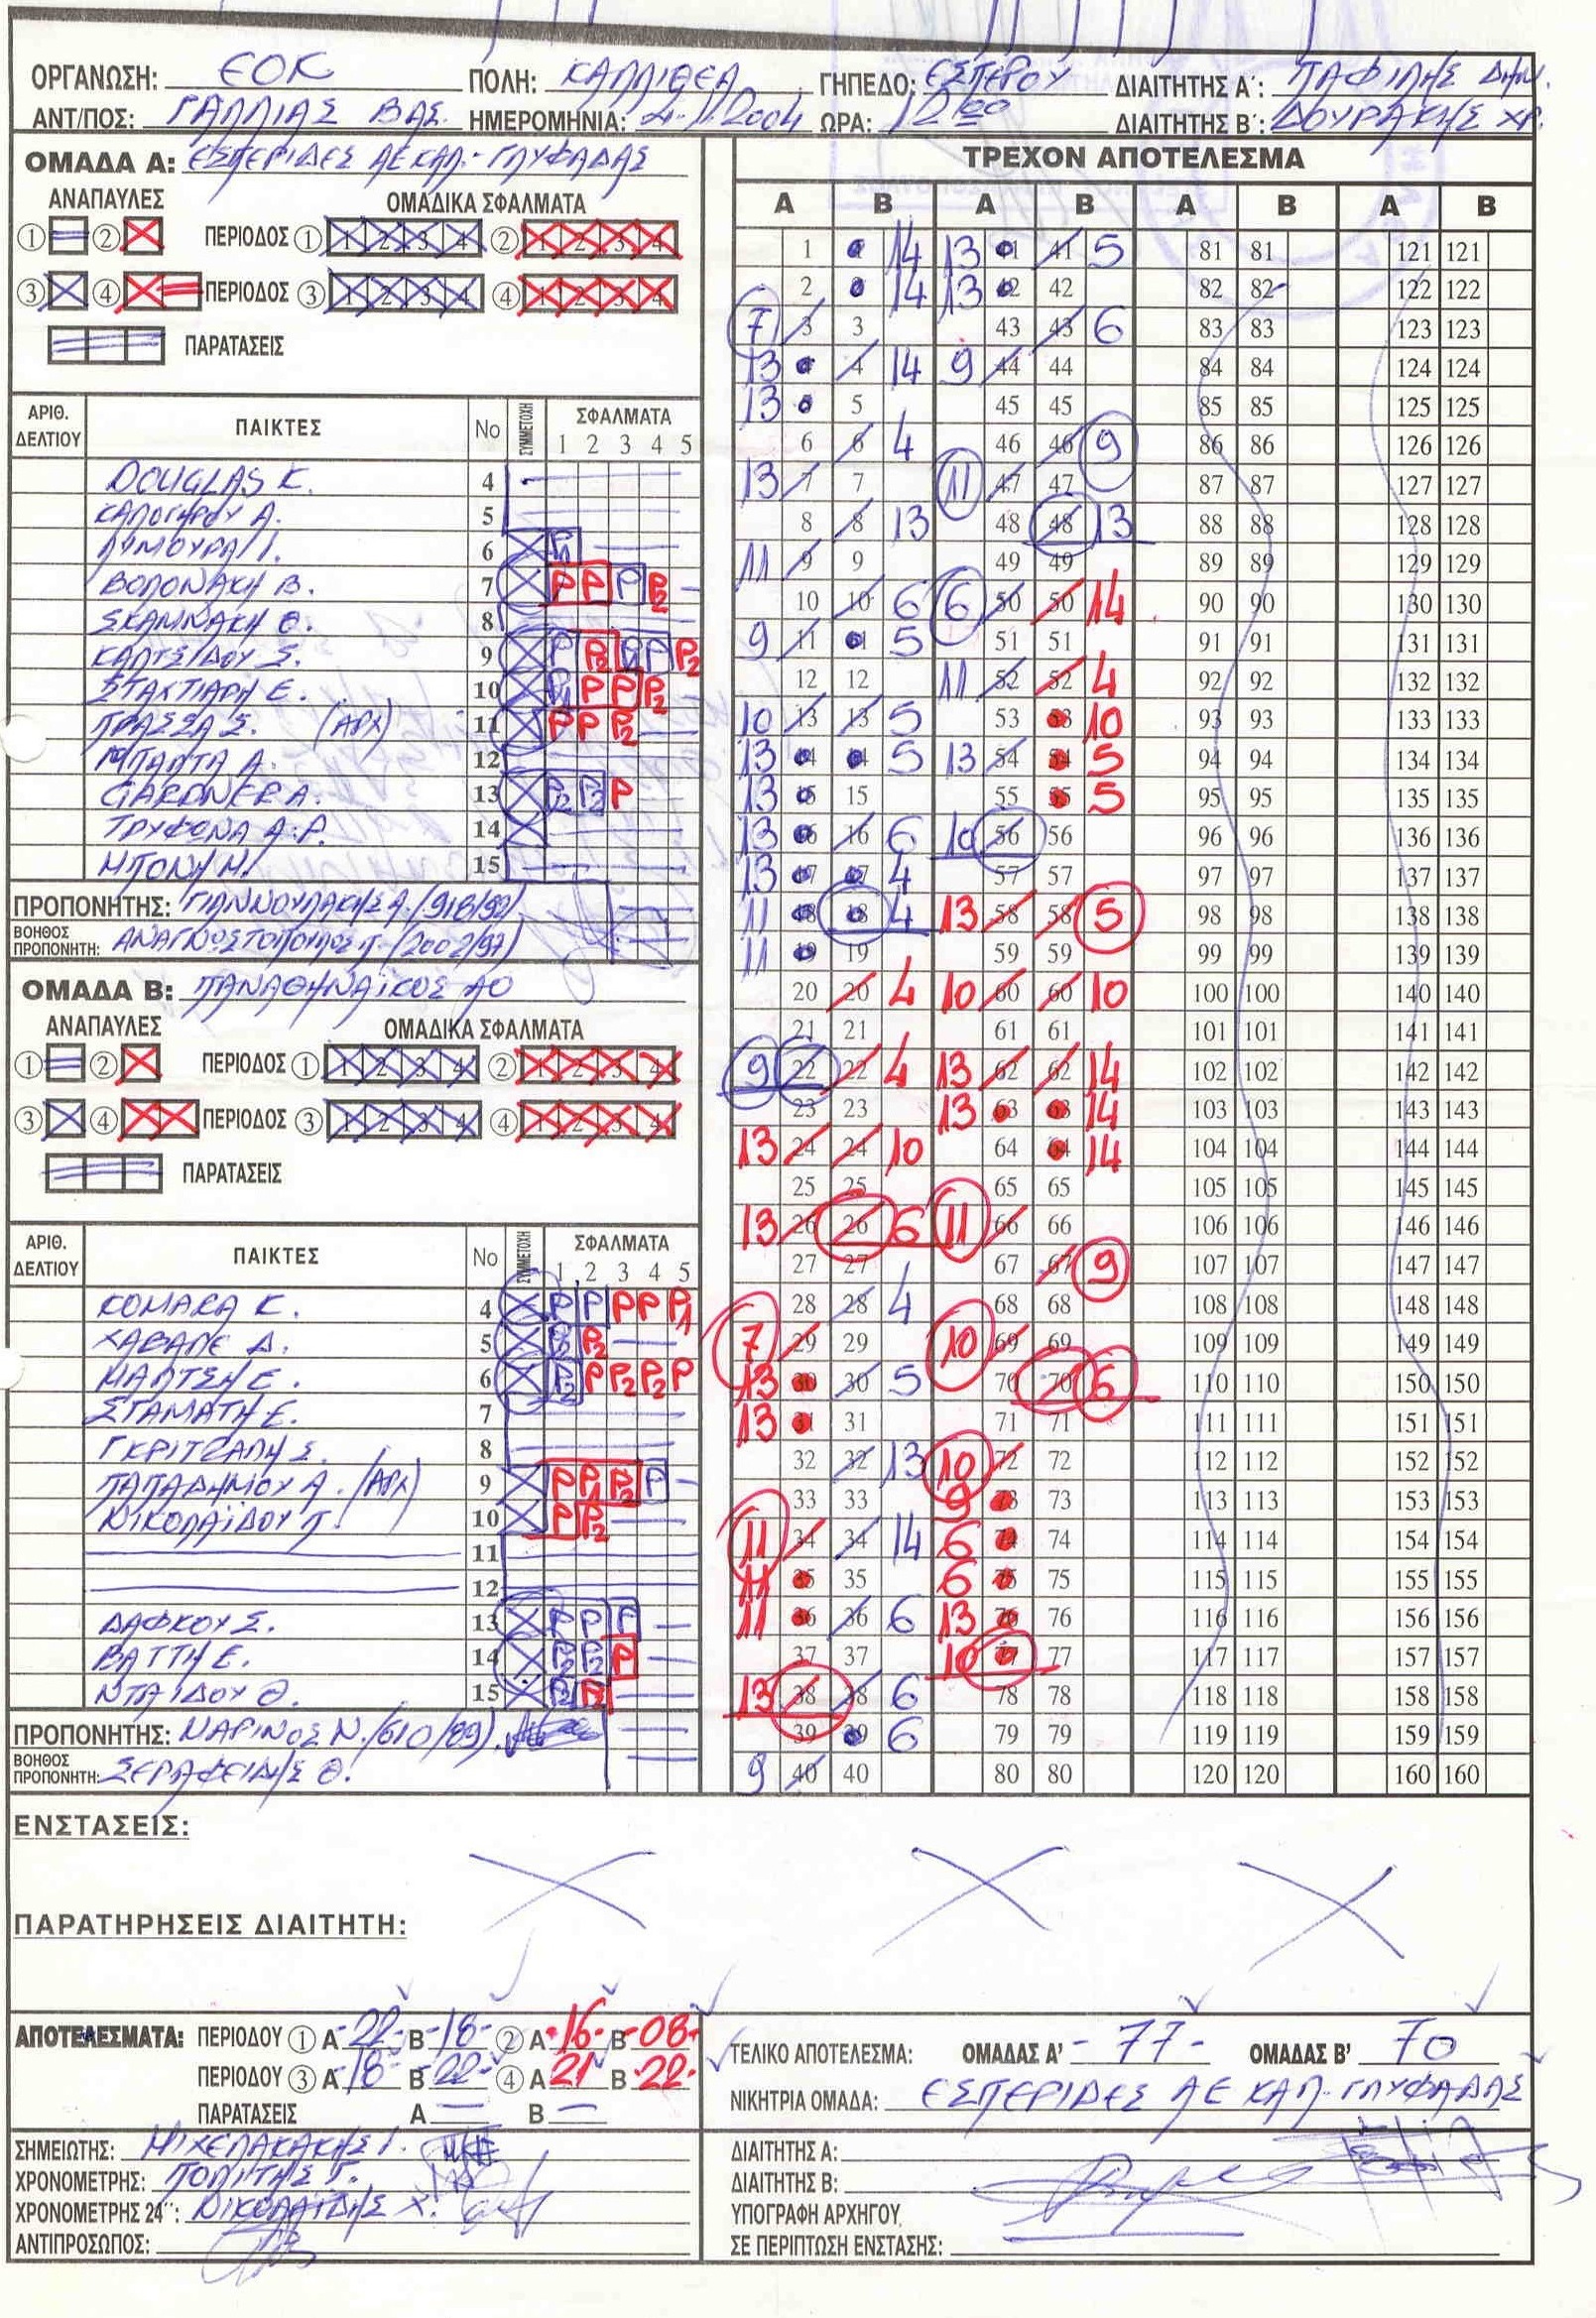 ΟΡΓΑΝΩΣΗ: ΕΟΚ ΠΟΛΗ: ΚΑΛΛΙΘΕΑ ΓΗΠΕΔΟ: ΕΣΠΕΡΟΥ ΔΙΑΙΤΗΤΗΣ Α΄: ΠΑΦΙΛΗΣ ΔΗΜ.
ΑΝΤ/ΠΟΣ: ΓΑΛΛΙΑΣ ΒΑΣ. ΗΜΕΡΟΜΗΝΙΑ: 21.11.2004 ΩΡΑ: 12:00 ΔΙΑΙΤΗΤΗΣ Β΄: ΔΟΥΡΑΚΗΣ ΧΡ.
ΟΜΑΔΑ Α: ΕΣΠΕΡΙΔΕΣ ΑΕ ΚΑΛ.-ΓΛΥΦΑΔΑΣ
ΑΝΑΠΑΥΛΕΣ ΟΜΑΔΙΚΑ ΣΦΑΛΜΑΤΑ
① ② ΠΕΡΙΟΔΟΣ ① 1 2 3 4 ② 1 2 3 4
③ ④ ΠΕΡΙΟΔΟΣ ③ 1 2 3 4 ④ 1 2 3 4
ΠΑΡΑΤΑΣΕΙΣ
ΑΡΙΘ. ΔΕΛΤΙΟΥ ΠΑΙΚΤΕΣ No ΣΥΜΜΕΤΟΧΗ ΣΦΑΛΜΑΤΑ
1 2 3 4 5
DOUGLAS K. 4
ΚΑΛΟΓΗΡΟΥ Α. 5
ΛΥΜΟΥΡΑ Ι. 6 P1
ΒΟΛΟΝΑΚΗ Β. 7 P P P P2
ΣΚΑΜΝΑΚΗ Θ. 8
ΚΑΛΤΣΙΔΟΥ Σ. 9 P P2 P P2
ΣΤΑΚΤΙΑΡΗ Ε. 10 P1 P P P2
ΠΡΑΣΣΑ Σ. (ΑΡΧ) 11 P P P2
ΜΠΑΛΤΑ Α. 12
GARDNER A. 13 P2 P2 P
ΤΡΥΦΩΝΑ Α.Ρ. 14
ΜΠΟΝΗ Μ. 15
ΠΡΟΠΟΝΗΤΗΣ: ΓΙΑΝΝΟΥΛΑΚΗΣ Α./918/92)
ΒΟΗΘΟΣ ΠΡΟΠΟΝΗΤΗ: ΑΝΑΓΝΩΣΤΟΠΟΥΛΟΣ Π./2002/97)
ΟΜΑΔΑ Β: ΠΑΝΑΘΗΝΑΪΚΟΣ ΑΟ
ΑΝΑΠΑΥΛΕΣ ΟΜΑΔΙΚΑ ΣΦΑΛΜΑΤΑ
① ② ΠΕΡΙΟΔΟΣ ① 1 2 3 4 ② 1 2 3 4
③ ④ ΠΕΡΙΟΔΟΣ ③ 1 2 3 4 ④ 1 2 3 4
ΠΑΡΑΤΑΣΕΙΣ
ΑΡΙΘ. ΔΕΛΤΙΟΥ ΠΑΙΚΤΕΣ No ΣΥΜΜΕΤΟΧΗ ΣΦΑΛΜΑΤΑ
1 2 3 4 5
ΚΟΜΑΚΑ Κ. 4 P P P P P1
ΧΑΒΑΛΕ Δ. 5 P2 P2
ΜΑΛΤΣΗ Ε. 6 P2 P P2 P2 P
ΣΤΑΜΑΤΗ Ε. 7
ΓΚΡΙΤΖΑΛΗ Σ. 8
ΠΑΠΑΔΗΜΟΥ Α. (ΑΡΧ) 9 P P1 P2 P
ΝΙΚΟΛΑΪΔΟΥ Π. 10 P P2
11
12
ΔΑΦΚΟΥ Σ. 13 P P P
ΒΑΤΤΗ Ε. 14 P2 P2 P
ΝΤΑΙΔΟΥ Θ. 15
ΠΡΟΠΟΝΗΤΗΣ: ΜΑΡΙΝΟΣ Ν./610/89)
ΒΟΗΘΟΣ ΠΡΟΠΟΝΗΤΗ: ΣΕΡΑΦΕΙΔΗΣ Θ.
ΤΡΕΧΟΝ ΑΠΟΤΕΛΕΣΜΑ
Α Β Α Β Α Β Α Β
1 1 14 13 41 41 5 81 81 121 121
2 2 14 13 42 42 82 82 122 122
7 3 3 43 43 6 83 83 123 123
13 4 4 14 9 44 44 84 84 124 124
13 5 5 45 45 85 85 125 125
6 6 4 46 46 9 86 86 126 126
13 7 7 11 47 47 87 87 127 127
8 8 13 48 48 13 88 88 128 128
11 9 9 49 49 89 89 129 129
10 10 6 6 50 50 14 90 90 130 130
9 11 11 5 51 51 91 91 131 131
12 12 11 52 52 4 92 92 132 132
10 13 13 5 53 53 10 93 93 133 133
13 14 14 5 13 54 54 5 94 94 134 134
13 15 15 55 55 5 95 95 135 135
13 16 16 6 10 56 56 96 96 136 136
13 17 17 4 57 57 97 97 137 137
11 18 18 4 13 58 58 5 98 98 138 138
11 19 19 59 59 99 99 139 139
20 20 4 10 60 60 10 100 100 140 140
21 21 61 61 101 101 141 141
9 22 22 4 13 62 62 14 102 102 142 142
23 23 13 63 63 14 103 103 143 143
13 24 24 10 64 64 14 104 104 144 144
25 25 65 65 105 105 145 145
13 26 26 6 11 66 66 106 106 146 146
27 27 67 67 9 107 107 147 147
28 28 4 68 68 108 108 148 148
7 29 29 10 69 69 109 109 149 149
13 30 30 5 70 70 6 110 110 150 150
13 31 31 71 71 111 111 151 151
32 32 13 10 72 72 112 112 152 152
33 33 9 73 73 113 113 153 153
11 34 34 14 6 74 74 114 114 154 154
11 35 35 6 75 75 115 115 155 155
11 36 36 6 13 76 76 116 116 156 156
37 37 10 77 77 117 117 157 157
13 38 38 6 78 78 118 118 158 158
39 39 6 79 79 119 119 159 159
9 40 40 80 80 120 120 160 160
ΕΝΣΤΑΣΕΙΣ:
ΠΑΡΑΤΗΡΗΣΕΙΣ ΔΙΑΙΤΗΤΗ:
ΑΠΟΤΕΛΕΣΜΑΤΑ: ΠΕΡΙΟΔΟΥ ① Α -22- Β -18- ② Α -16- Β -08-
ΠΕΡΙΟΔΟΥ ③ Α -18- Β -22- ④ Α 21 Β -22-
ΠΑΡΑΤΑΣΕΙΣ Α — Β —
ΤΕΛΙΚΟ ΑΠΟΤΕΛΕΣΜΑ: ΟΜΑΔΑΣ Α' -77- ΟΜΑΔΑΣ Β' 70
ΝΙΚΗΤΡΙΑ ΟΜΑΔΑ: ΕΣΠΕΡΙΔΕΣ ΑΕ ΚΑΛ.-ΓΛΥΦΑΔΑΣ
ΣΗΜΕΙΩΤΗΣ: ΜΙΧΕΛΑΚΑΚΗΣ Ι.
ΧΡΟΝΟΜΕΤΡΗΣ: ΠΟΛΙΤΗΣ Γ.
ΧΡΟΝΟΜΕΤΡΗΣ 24'': ΝΙΚΟΛΑΪΔΗΣ Χ.
ΑΝΤΙΠΡΟΣΩΠΟΣ:
ΔΙΑΙΤΗΤΗΣ Α:
ΔΙΑΙΤΗΤΗΣ Β:
ΥΠΟΓΡΑΦΗ ΑΡΧΗΓΟΥ
ΣΕ ΠΕΡΙΠΤΩΣΗ ΕΝΣΤΑΣΗΣ: